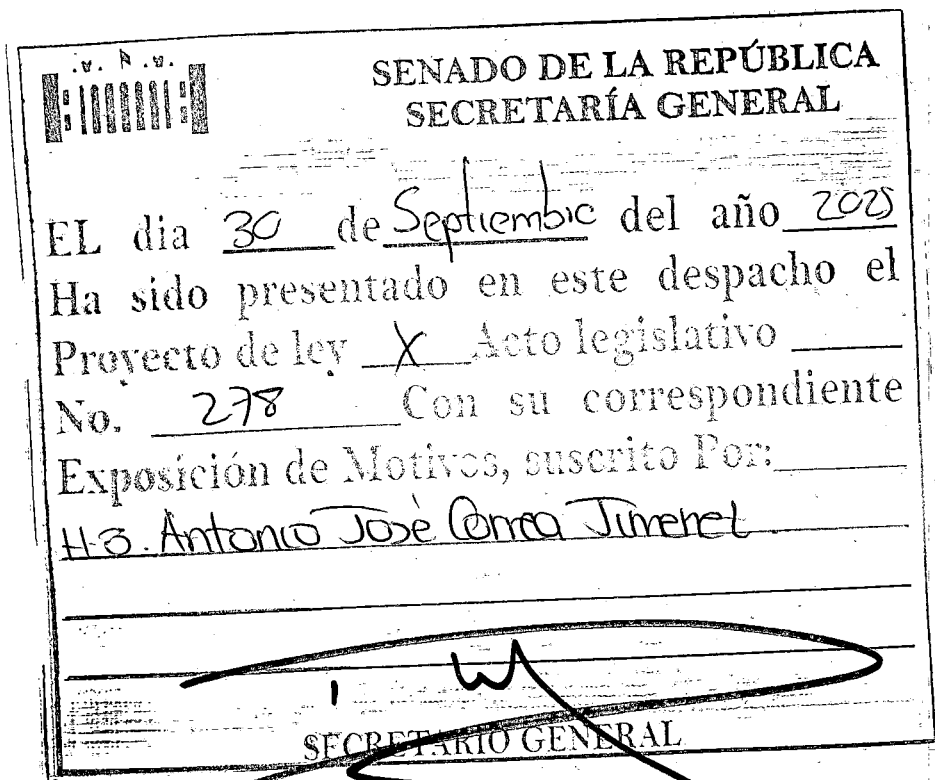 SENADO DE LA REPÚBLICA
SECRETARÍA GENERAL
EL dia 30 de Septiembre del año 2025
Ha sido presentado en este despacho el
Proyecto de ley X Acto legislativo
No. 278 Con su correspondiente
Exposición de Motivos, suscrito Por:
H.S. Antonio José Correa Jimenez
SECRETARIO GENERAL